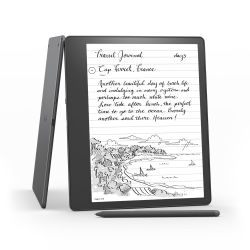 Travel Journal day 5
Cap Ferret, France
Another beautiful day of beach life
and indulging in many oysters and
perhaps too much white wine.
Low tide after lunch, the perfect
time to go to the ocean. Evenly
another swim there Heaven!